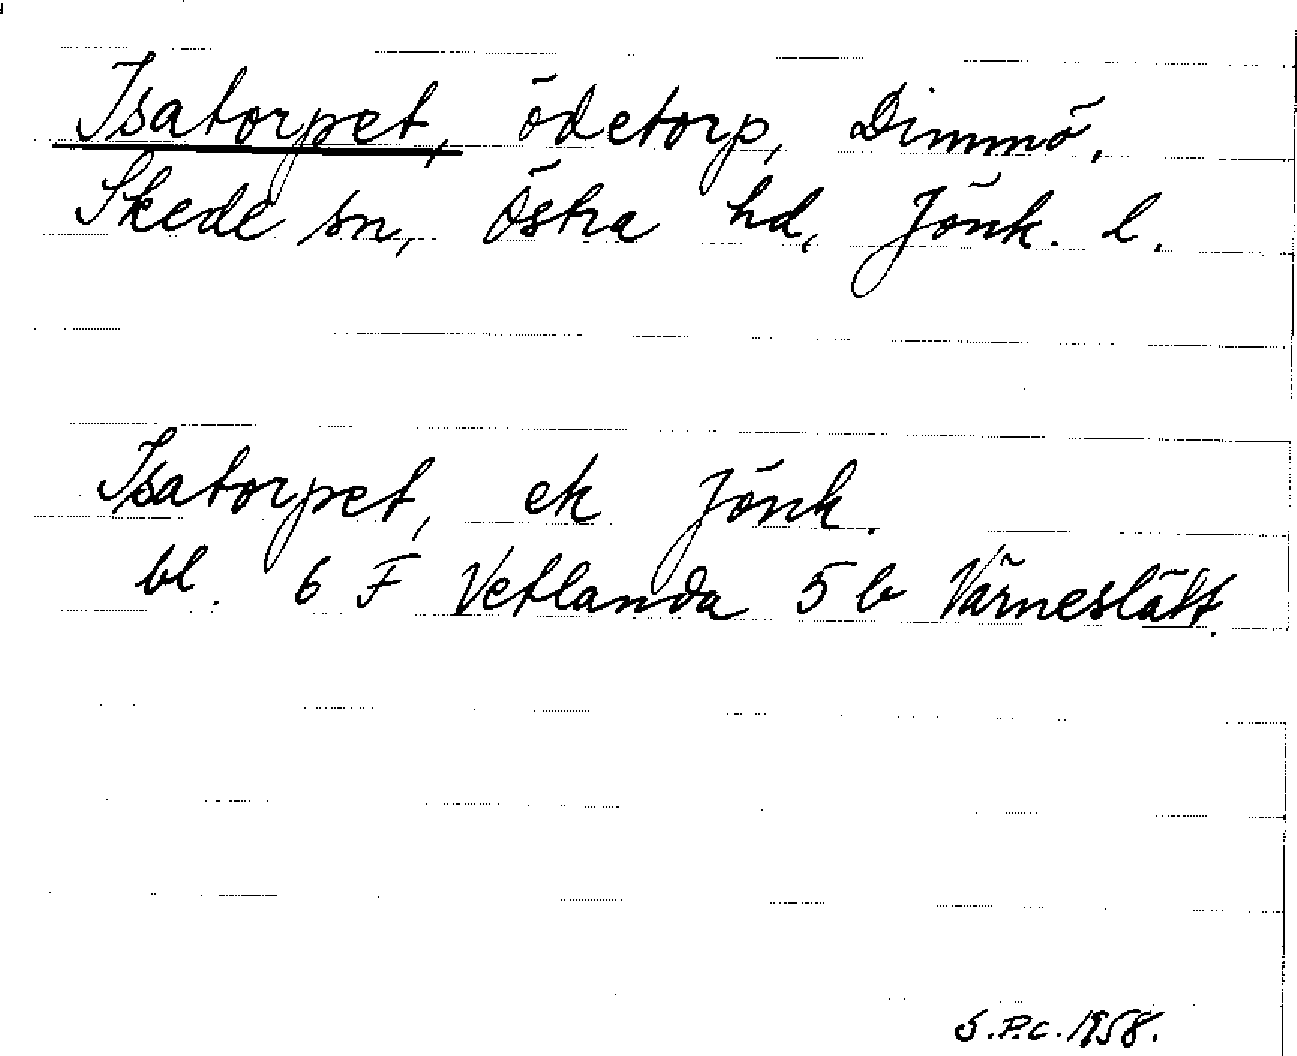 Isatorpet, ödetorp, Dimmö.
Skede sn, Östra hd, Jönk. l.
Isatorpet, ek Jönk.
bl. 6 F Vetlanda 5 b Värneslätt.
S.P.C. 1958.